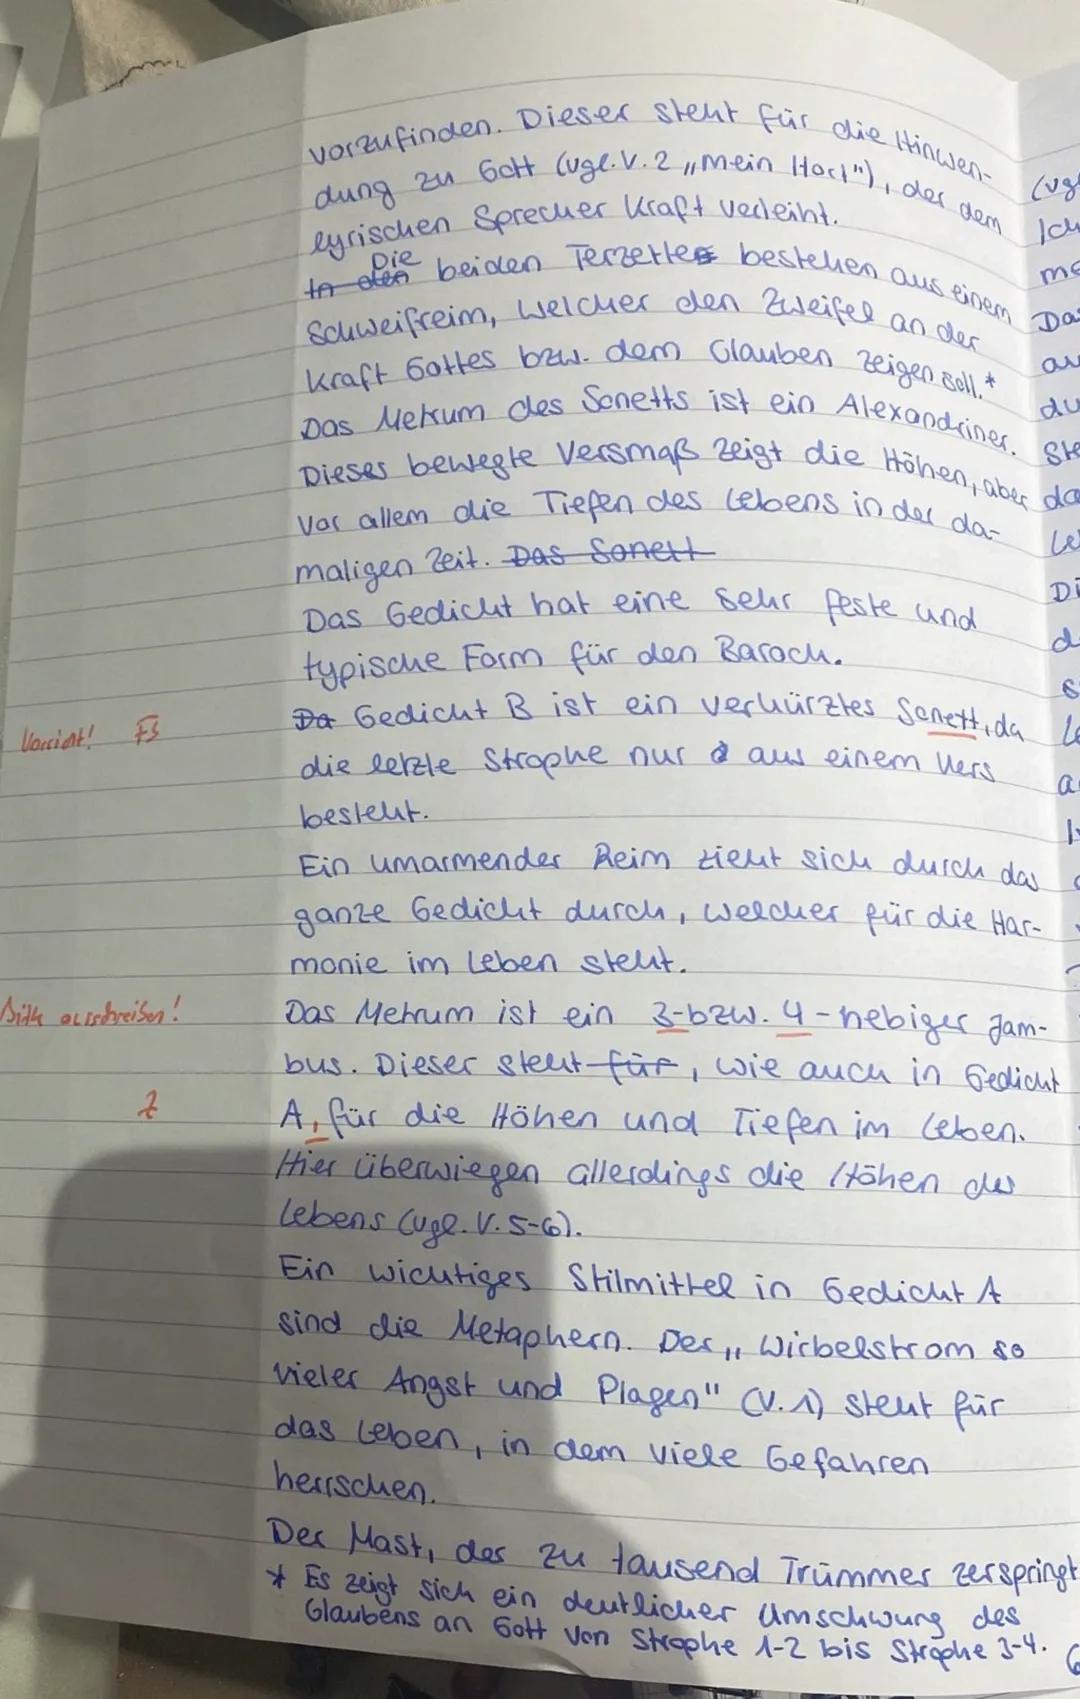 vorzufinden. Dieser steht für die Hinwen-
dung zu Gott (vgl. V. 2 „mein Hort"), der dem
lyrischen Sprecher Kraft verleiht.
In den Die beiden Terzette bestehen aus einem
Schweifreim, welcher den Zweifel an der
Kraft Gottes bzw. dem Glauben zeigen soll.*
Das Metrum des Sonetts ist ein Alexandriner.
Dieses bewegte Versmaß zeigt die Höhen, aber
vor allem die Tiefen des Lebens in der da-
maligen Zeit. Das Sonett
Das Gedicht hat eine sehr feste und
typische Form für den Barock.
Da Gedicht B ist ein verkürztes Sonett, da
Vorsicht! FS
die letzte Strophe nur aus einem Vers
besteht.
Ein umarmender Reim zieht sich durch das
ganze Gedicht durch, welcher für die Har-
monie im Leben steht.
Bitte ausschreiben!
Das Metrum ist ein 3-bzw. 4-hebiger Jam-
bus. Dieser steht für, wie auch in Gedicht
Z
A, für die Höhen und Tiefen im Leben.
Hier überwiegen allerdings die Höhen des
Lebens (vgl. V. 5-6).
Ein wichtiges Stilmittel in Gedicht A
sind die Metaphern. Der „Wirbelstrom so
vieler Angst und Plagen" (V. 1) steht für
das Leben, in dem viele Gefahren
herrschen.
Der Mast, der zu tausend Trümmer zerspringt
* Es zeigt sich ein deutlicher Umschwung des
Glaubens an Gott von Strophe 1-2 bis Strophe 3-4.